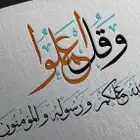 وقل اعملوا
الله عملكم ورسوله والمؤمنون